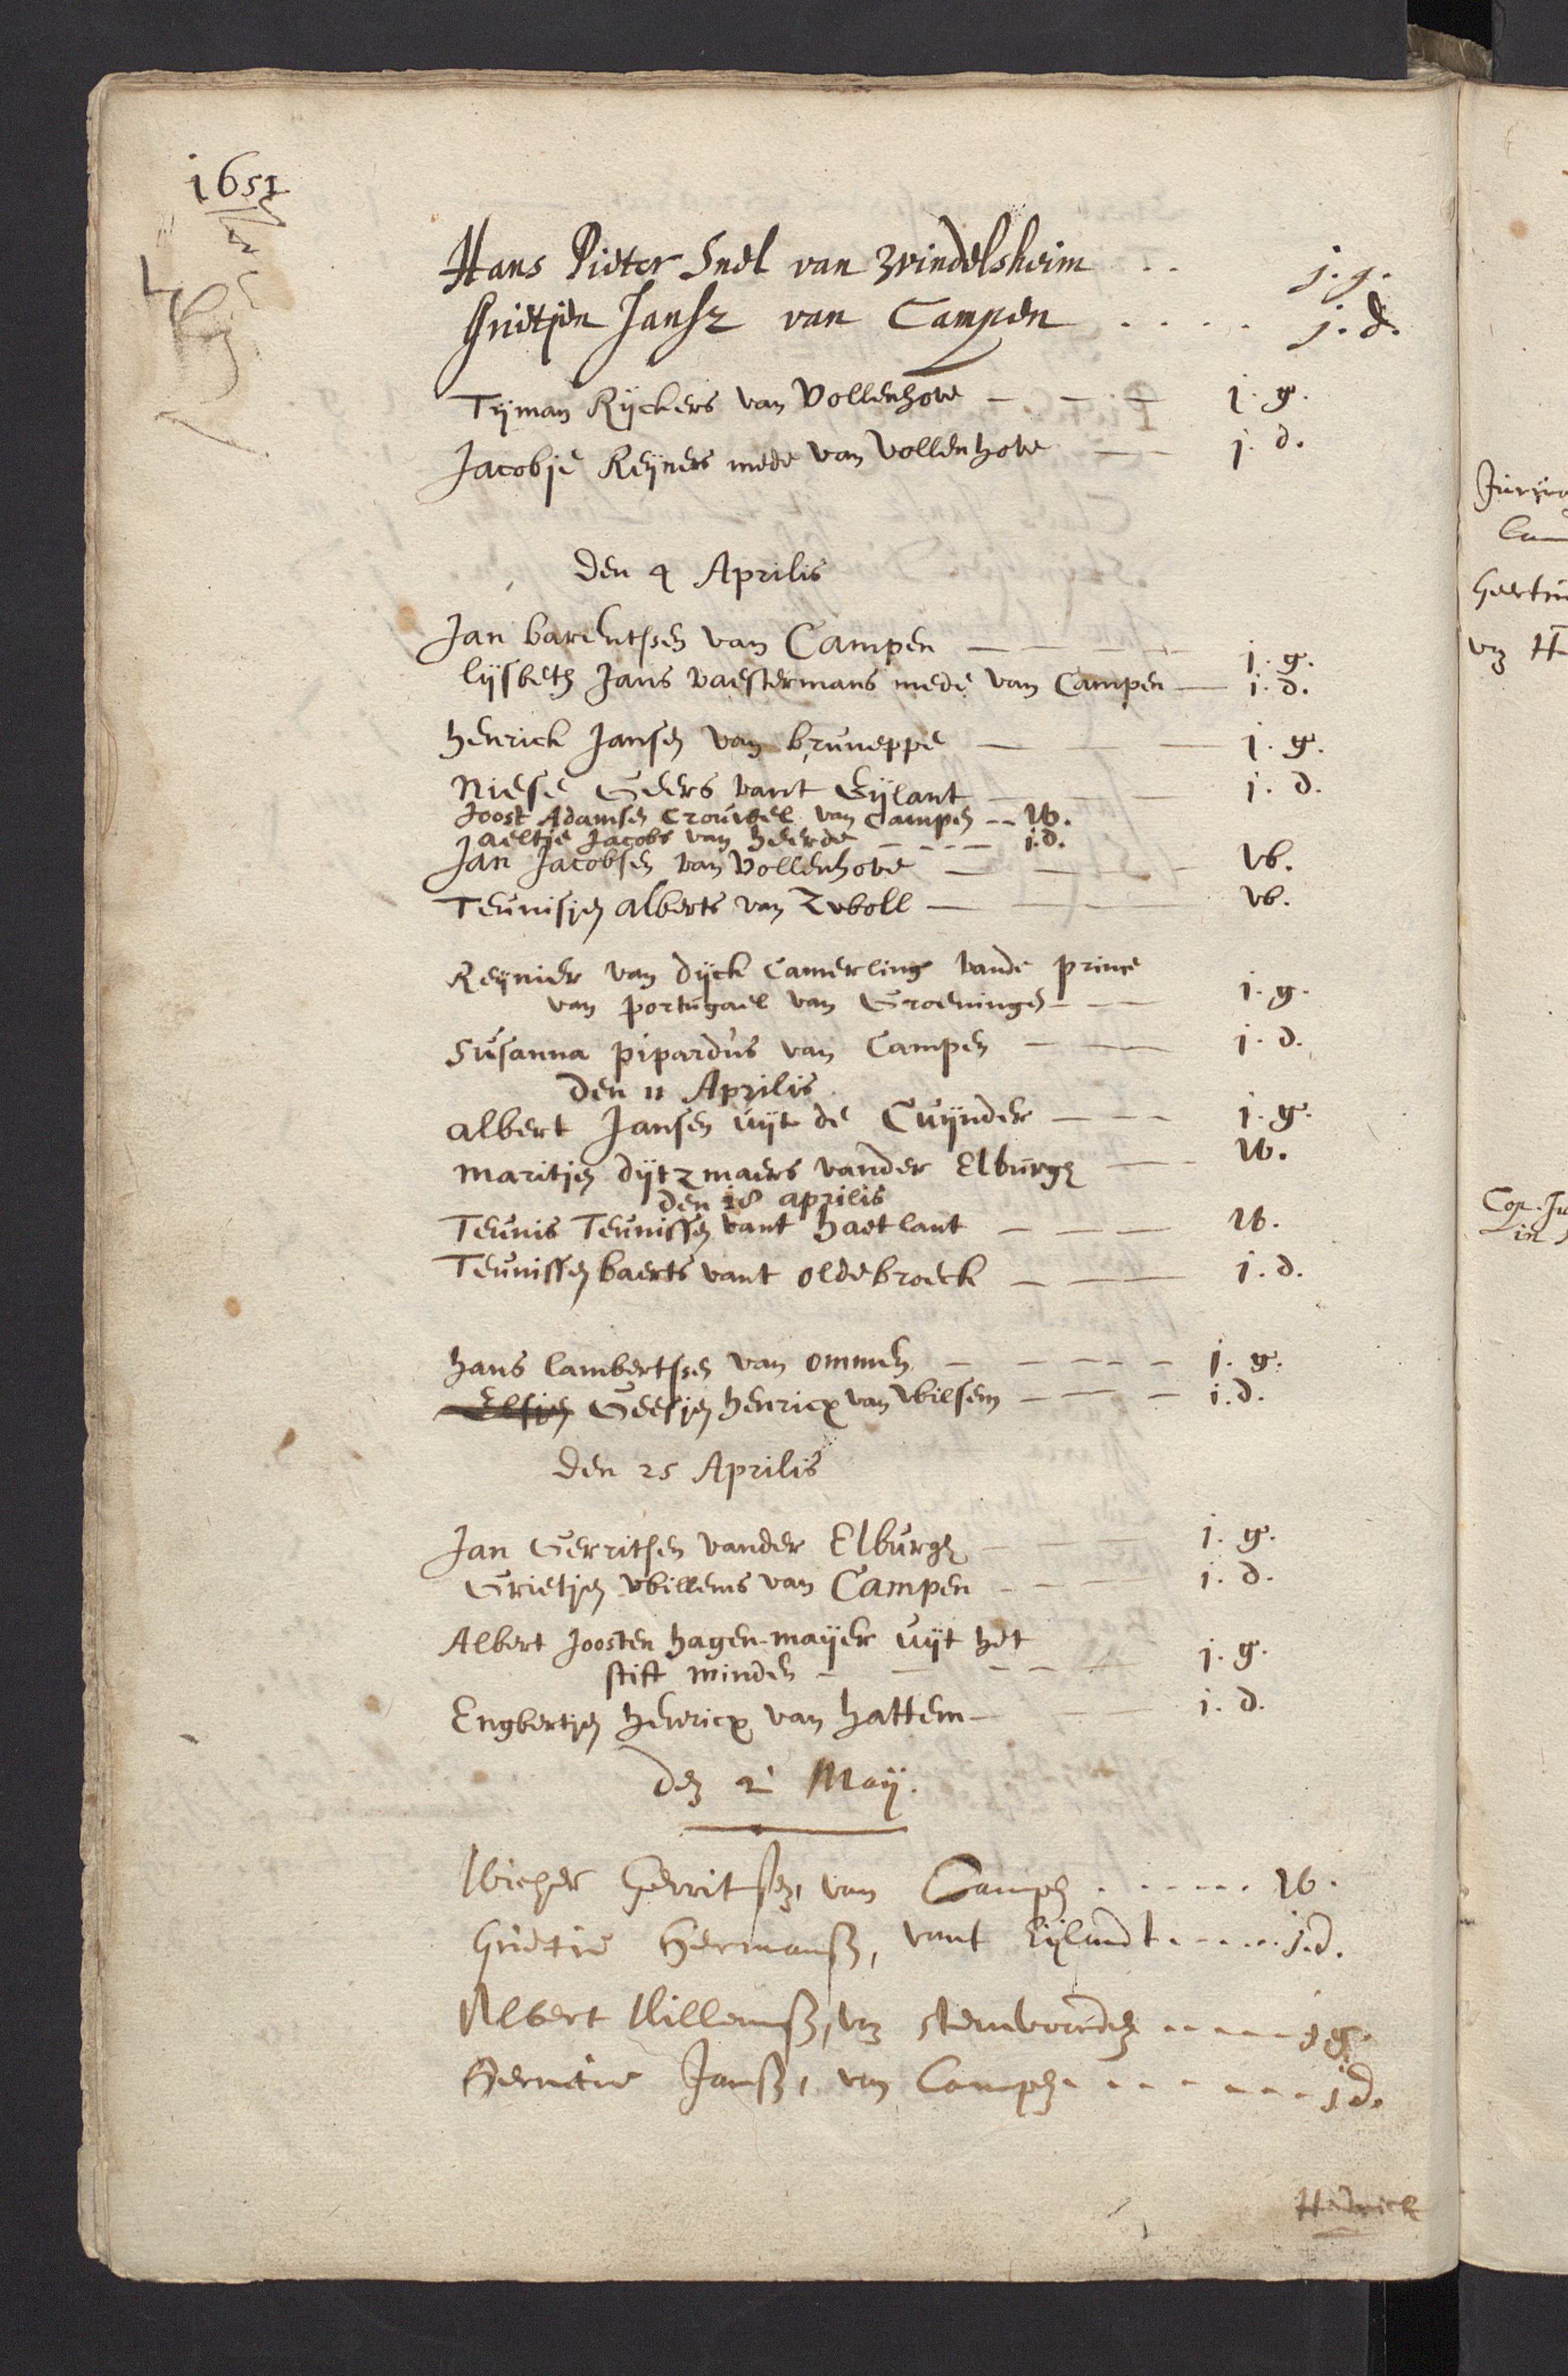 1651
Hans Pieter Snel van Windelsheim . . j. g.
Grietjen Jansz van Campen . . . . j. d.
Tijman Rijckers van Vollenhove — — — j. g.
Jacobje Reijners mede van Vollenhove — — j. d.
den 4 Aprilis
Jan barentssen van Campen — — — — j. g.
lijsbeth Jans vaestermans mede van Campen — j. d.
henrick Jansen van bruneppe — — — j. g.
Niese Geers vant Eijlant — — — j. d.
Joost Adamsen Crouwel van Campen -- W.
aeltje Jacobs van heerde — - - — j. d.
Jan Jacobsen van Vollenhove — — — - W.
Teunisjen alberts van Zwoll — — — W.
Reijnier van dijck Camerling vande prince
van portugael van Groeningen — — j. g.
Susanna pipardus van Campen — — j. d.
den 11 Aprilis
albert Jansen uijt de Cuijnder — — - j. g.
maritjen dijtzmaers vander Elburgh — - W.
den 18 aprilis
Teunis Teunissen vant haetlant — — — W.
Teunissen baerts vant oldebroeck — — — j. d.
hans lambertssen van ommen — — - - - j. g.
Elsjen Geesjen henricx van Wilsem — - — - j. d.
den 25 Aprilis
Jan Gerritsen vander Elburgh — — — j. g.
Grietjen Willems van Campen - — — j. d.
Albert Joosten hagen-maijer uijt het
stift minden - — - - — j. g.
Engbertjen henricx van hattem — — — j. d.
den 2 Maij.
Wicher Gerritsen, van Campen . . . . . . W.
Grietie Hermansz, vant Eijlandt . . . . . j. d.
Albert Willemsz, van steenwoorden . . . . j g.
Jansz, van Campen . . . . . . . j d.
Hendrick
Cop. Ju
in